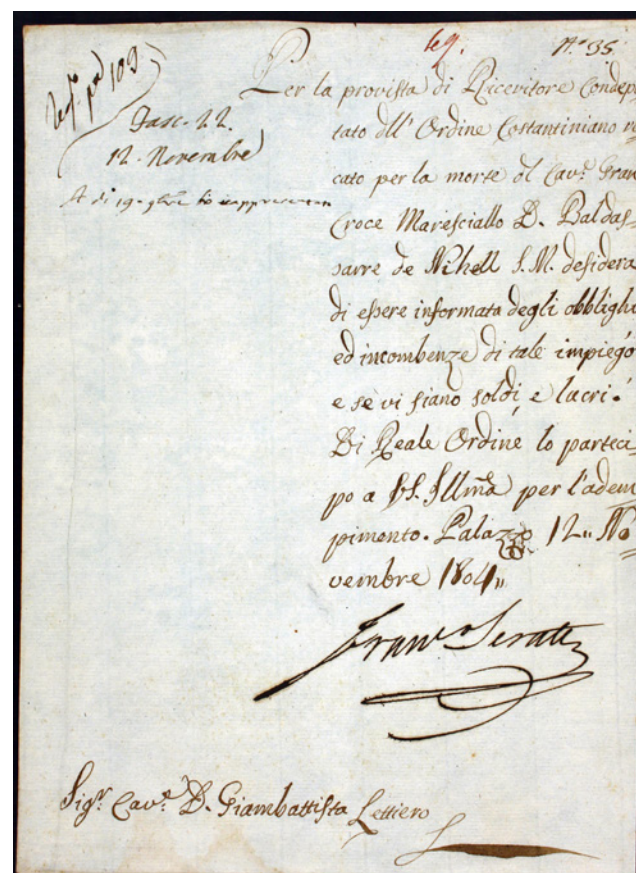 49. N.º 35
103
Fasc. 22.
12. Novembre
A di 19
Per la provista di Ricevitore Condep
tato dll' Ordine Costantiniano va
cato per la morte dl Cav.e Gran
Croce Maresciallo D. Baldas=
sarre de Nihell S.M. desidera
di essere informata degli obblighi
ed incombenze di tale impiego
e se vi siano soldi, e lucri.
Di Reale Ordine lo parteci=
po a VS. Illma per l'adem
pimento. Palazzo 12,, No
vembre 1804,,
Fran.co Seratti
Sig.r Cav.e D. Giambattista Lettiero